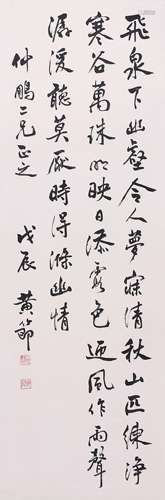 飛泉下幽壑令人夢寐清秋山匹練淨
寒谷萬珠明映日添霞色迎風作雨聲
潺湲聽莫厭時得滌幽情
仲鵬二兄正之
戊辰 黃節